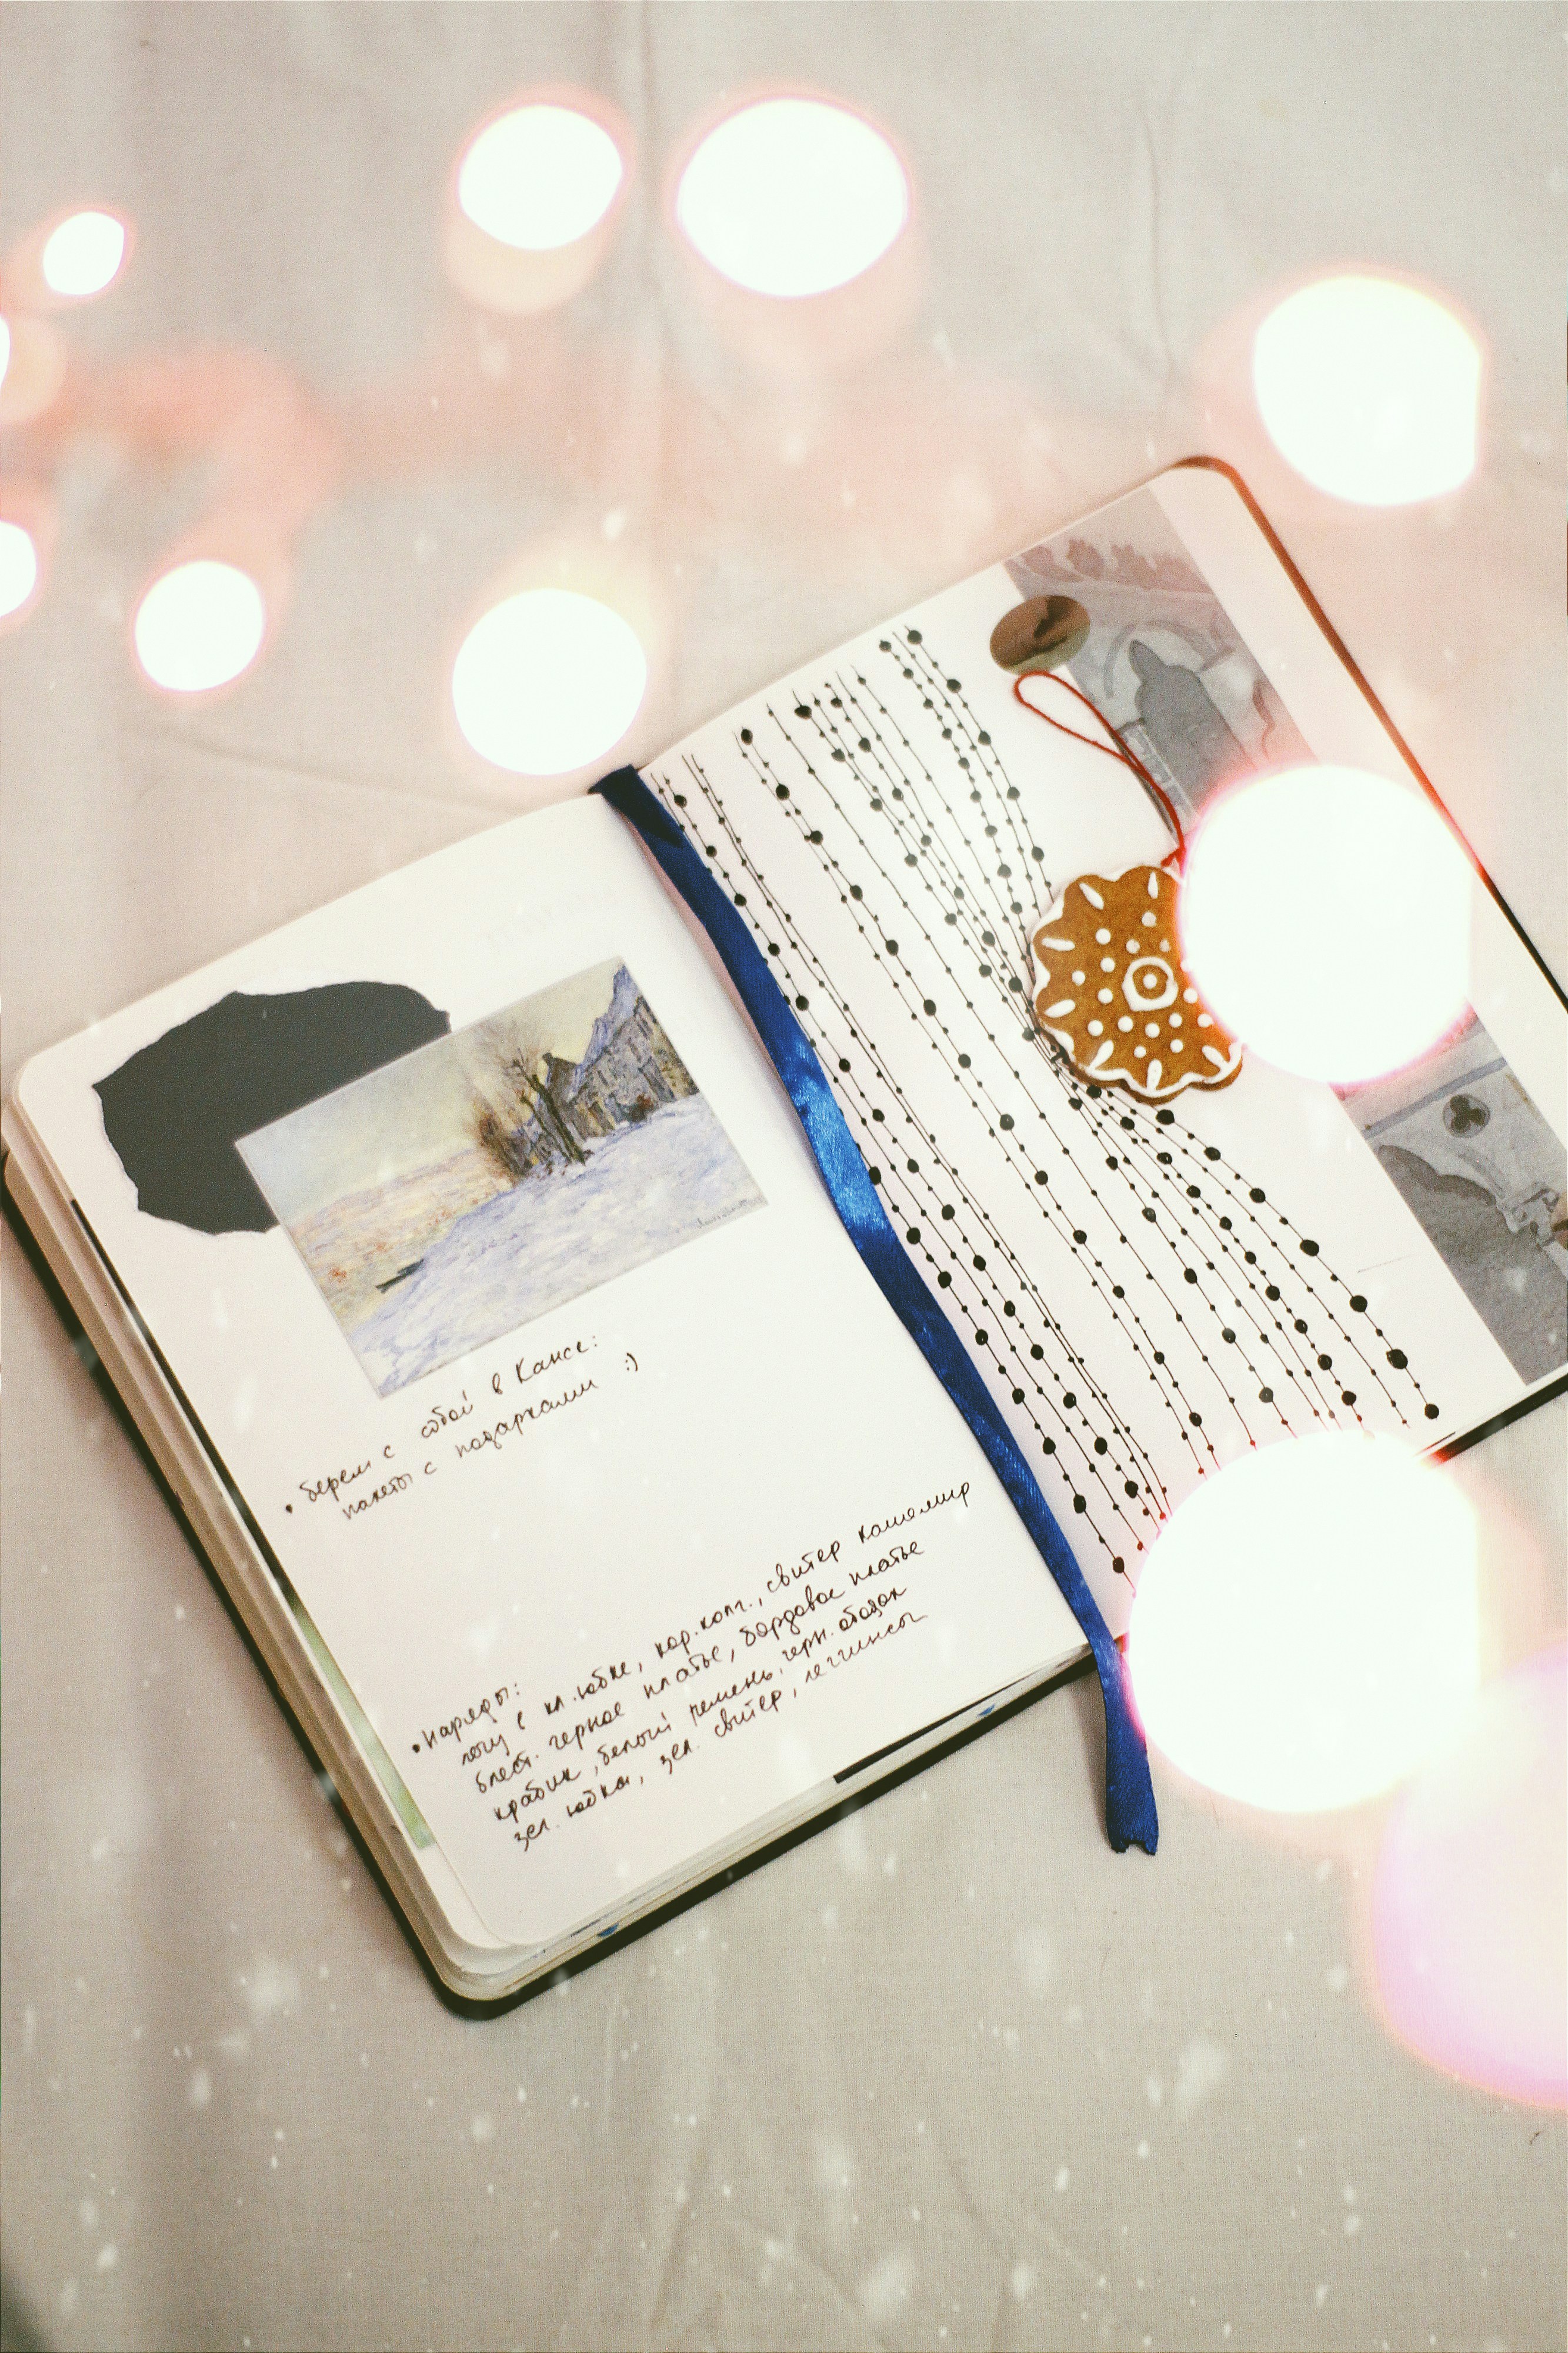 • берем с собой в Канск:
пакеты с подарками :)
• наряды:
в кл. юбке, кор. колг., свитер кашемир
блест. черное платье, бордовое платье
крабик, белый ремень, черн. ободок
зел. юбка, зел. свитер, леггинсы